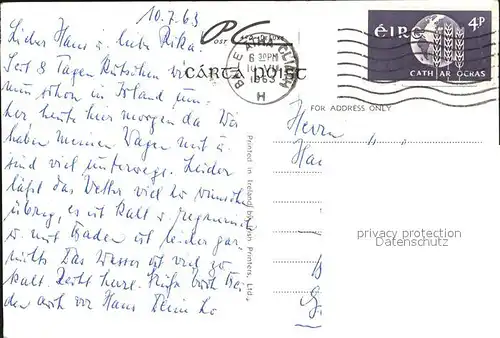 10.7.63
Lieber Hans u. liebe Rika!
Seit 8 Tagen kutschen wir
nun schon in Irland um
her heute hier morgen da Wir
haben meinen Wagen mit u.
sind viel unterwegs. Leider
läßt das Wetter viel zu wünschen
übrig, es ist kalt u. regnerisch
u. mit Baden ist leider gar
nichts Das Wasser ist viel zu
kalt. Recht herzl. Grüße
der auch von Hans Dein
POST
BAILE ÁTHA CLIATH
6 30PM
11 VII
1963
H
CÁRTA POIST
ÉIRE 4P
CATH AR OCRAS
FOR ADDRESS ONLY
Herrn
Ha
Printed in Ireland by Irish Printers, Ltd.
privacy protection
Datenschutz